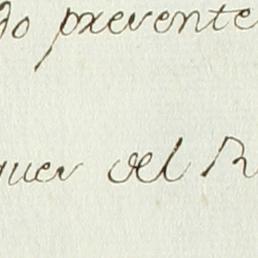 do prevente
quer del R